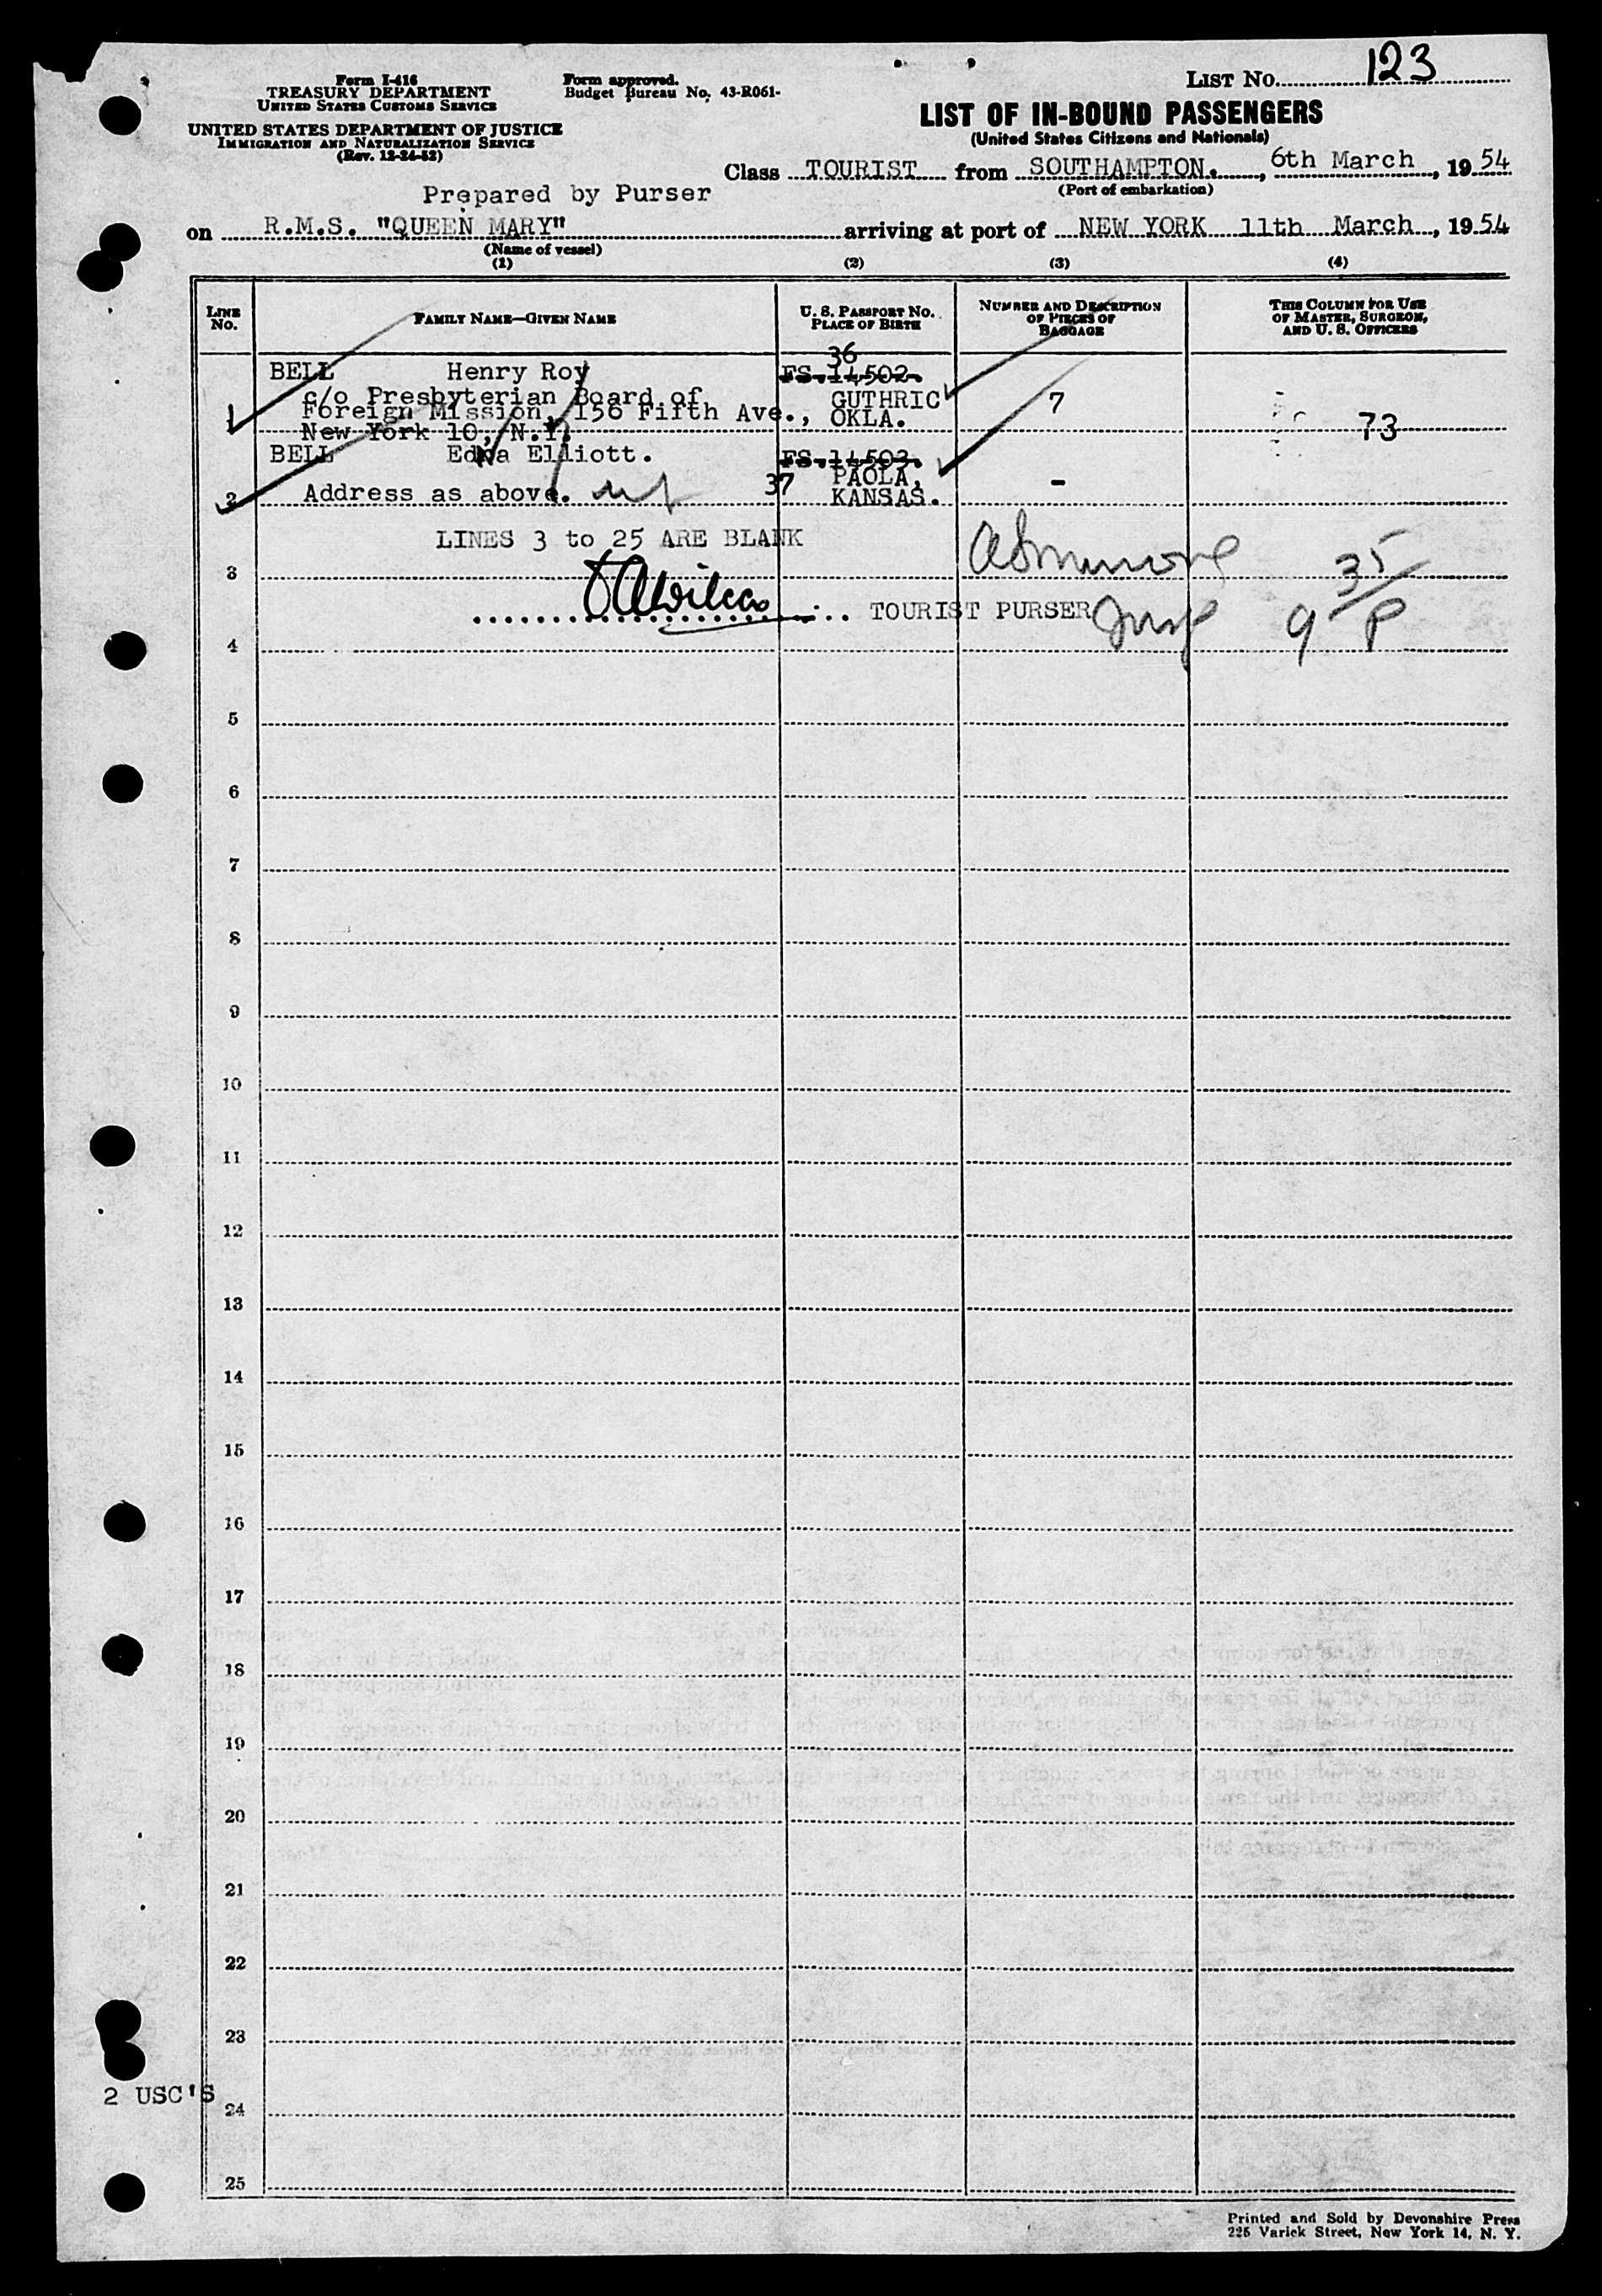 Form I-416
TREASURY DEPARTMENT
UNITED STATES CUSTOMS SERVICE
UNITED STATES DEPARTMENT OF JUSTICE
IMMIGRATION AND NATURALIZATION SERVICE
(Rev. 12-24-52)
Form approved.
Budget Bureau No. 43-R061-
LIST NO. 123
LIST OF IN-BOUND PASSENGERS
(United States Citizens and Nationals)
Class TOURIST from SOUTHAMPTON., 6th March, 1954
(Port of embarkation)
Prepared by Purser
on R.M.S. "QUEEN MARY" arriving at port of NEW YORK 11th March, 1954
(Name of vessel)
(1) (2) (3) (4)
LINE NO.
FAMILY NAME—GIVEN NAME
U. S. PASSPORT NO.
PLACE OF BIRTH
NUMBER AND DESCRIPTION
OF PIECES OF
BAGGAGE
THIS COLUMN FOR USE
OF MASTER, SURGEON,
AND U. S. OFFICERS
36
BELL Henry Roy FS.14502.
c/o Presbyterian Board of GUTHRIC 7
Foreign Mission, 156 Fifth Ave., OKLA.
1 New York 10, N.Y. 73
BELL Edna Elliott. FS.14503.
37 PAOLA,
2 Address as above. KANSAS. -
LINES 3 to 25 ARE BLANK
3 35
TOURIST PURSER 9 P
4
5
6
7
8
9
10
11
12
13
14
15
16
17
18
19
20
21
22
23
2 USC'S
24
25
Printed and Sold by Devonshire Press
225 Varick Street, New York 14, N. Y.